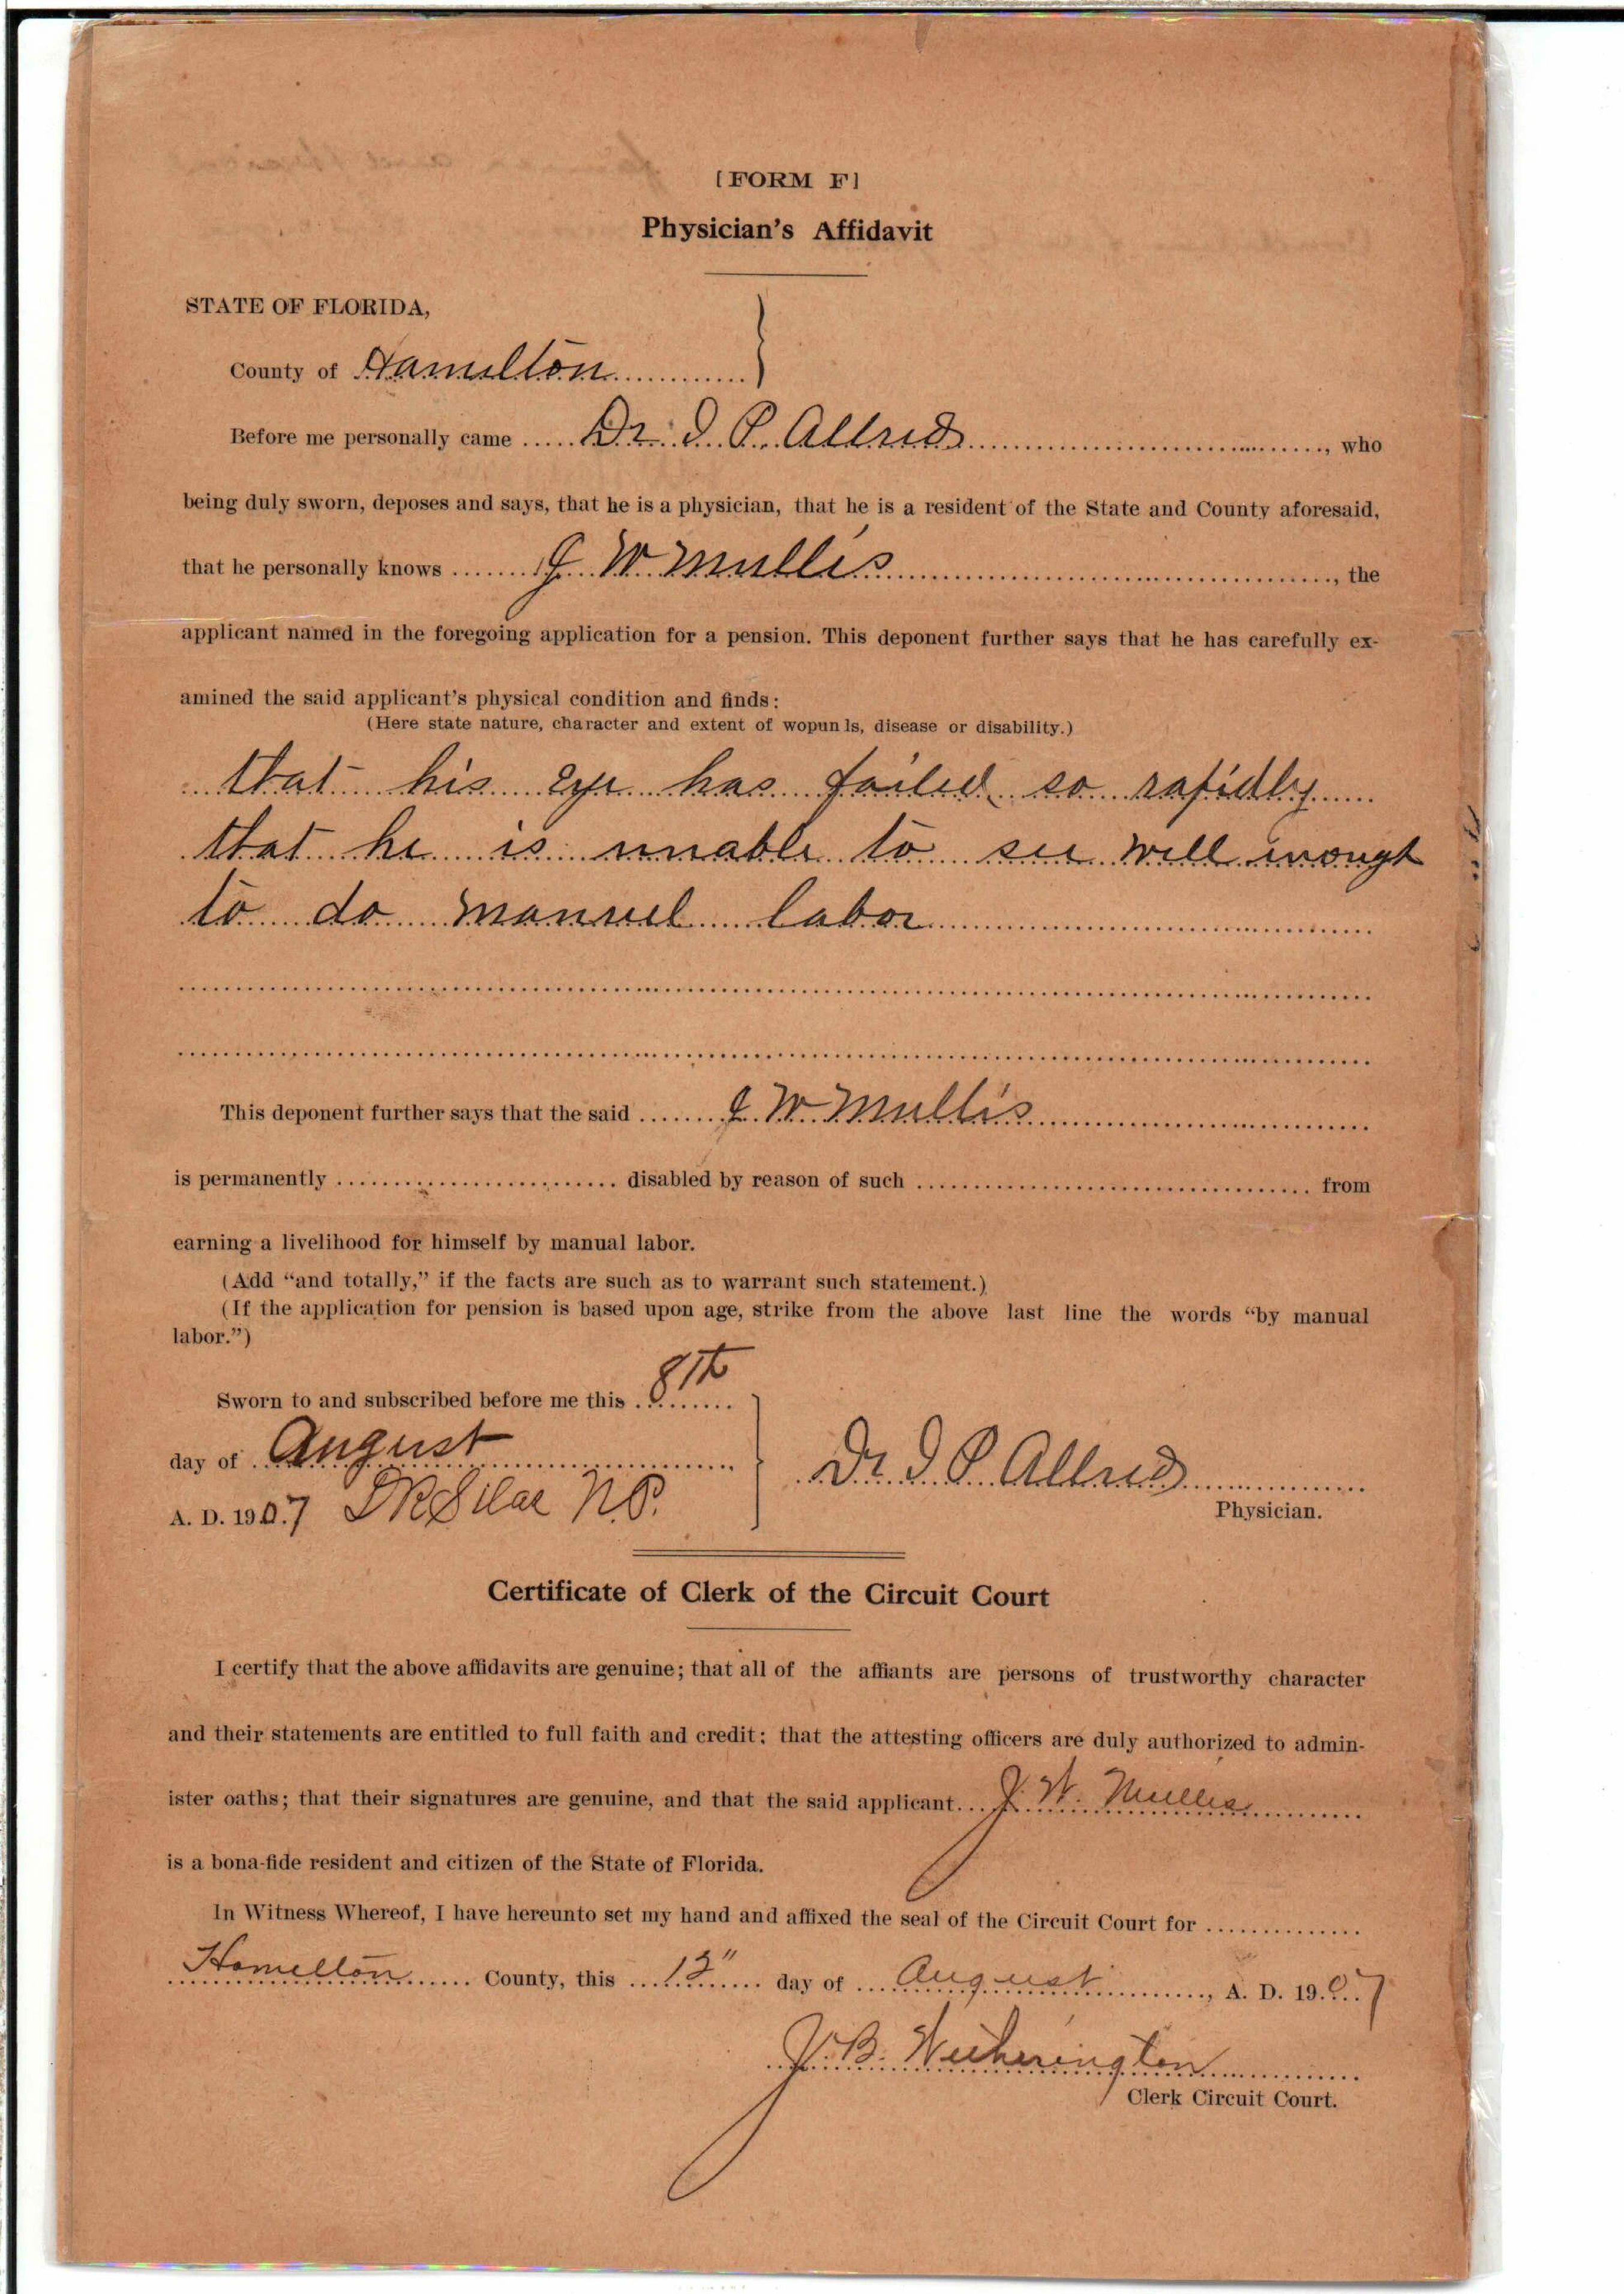 [FORM F]
Physician's Affidavit
STATE OF FLORIDA,
County of Hamilton
Before me personally came Dr. I. P. Allred, who
being duly sworn, deposes and says, that he is a physician, that he is a resident of the State and County aforesaid,
that he personally knows J. W. Mullis, the
applicant named in the foregoing application for a pension. This deponent further says that he has carefully ex-
amined the said applicant's physical condition and finds:
(Here state nature, character and extent of wopun ls, disease or disability.)
that his eye has failed so rapidly
that he is unable to see well enough
to do manuel labor
This deponent further says that the said J. W. Mullis
is permanently disabled by reason of such from
earning a livelihood for himself by manual labor.
(Add "and totally," if the facts are such as to warrant such statement.)
(If the application for pension is based upon age, strike from the above last line the words "by manual
labor.")
Sworn to and subscribed before me this 8th
day of August
A. D. 1907 N.P.
Dr. I. P. Allred
Physician.
Certificate of Clerk of the Circuit Court
I certify that the above affidavits are genuine; that all of the affiants are persons of trustworthy character
and their statements are entitled to full faith and credit; that the attesting officers are duly authorized to admin-
ister oaths; that their signatures are genuine, and that the said applicant J. W. Mullis
is a bona-fide resident and citizen of the State of Florida.
In Witness Whereof, I have hereunto set my hand and affixed the seal of the Circuit Court for
Hamilton County, this day of August, A. D. 1907
J. B. Witherington
Clerk Circuit Court.